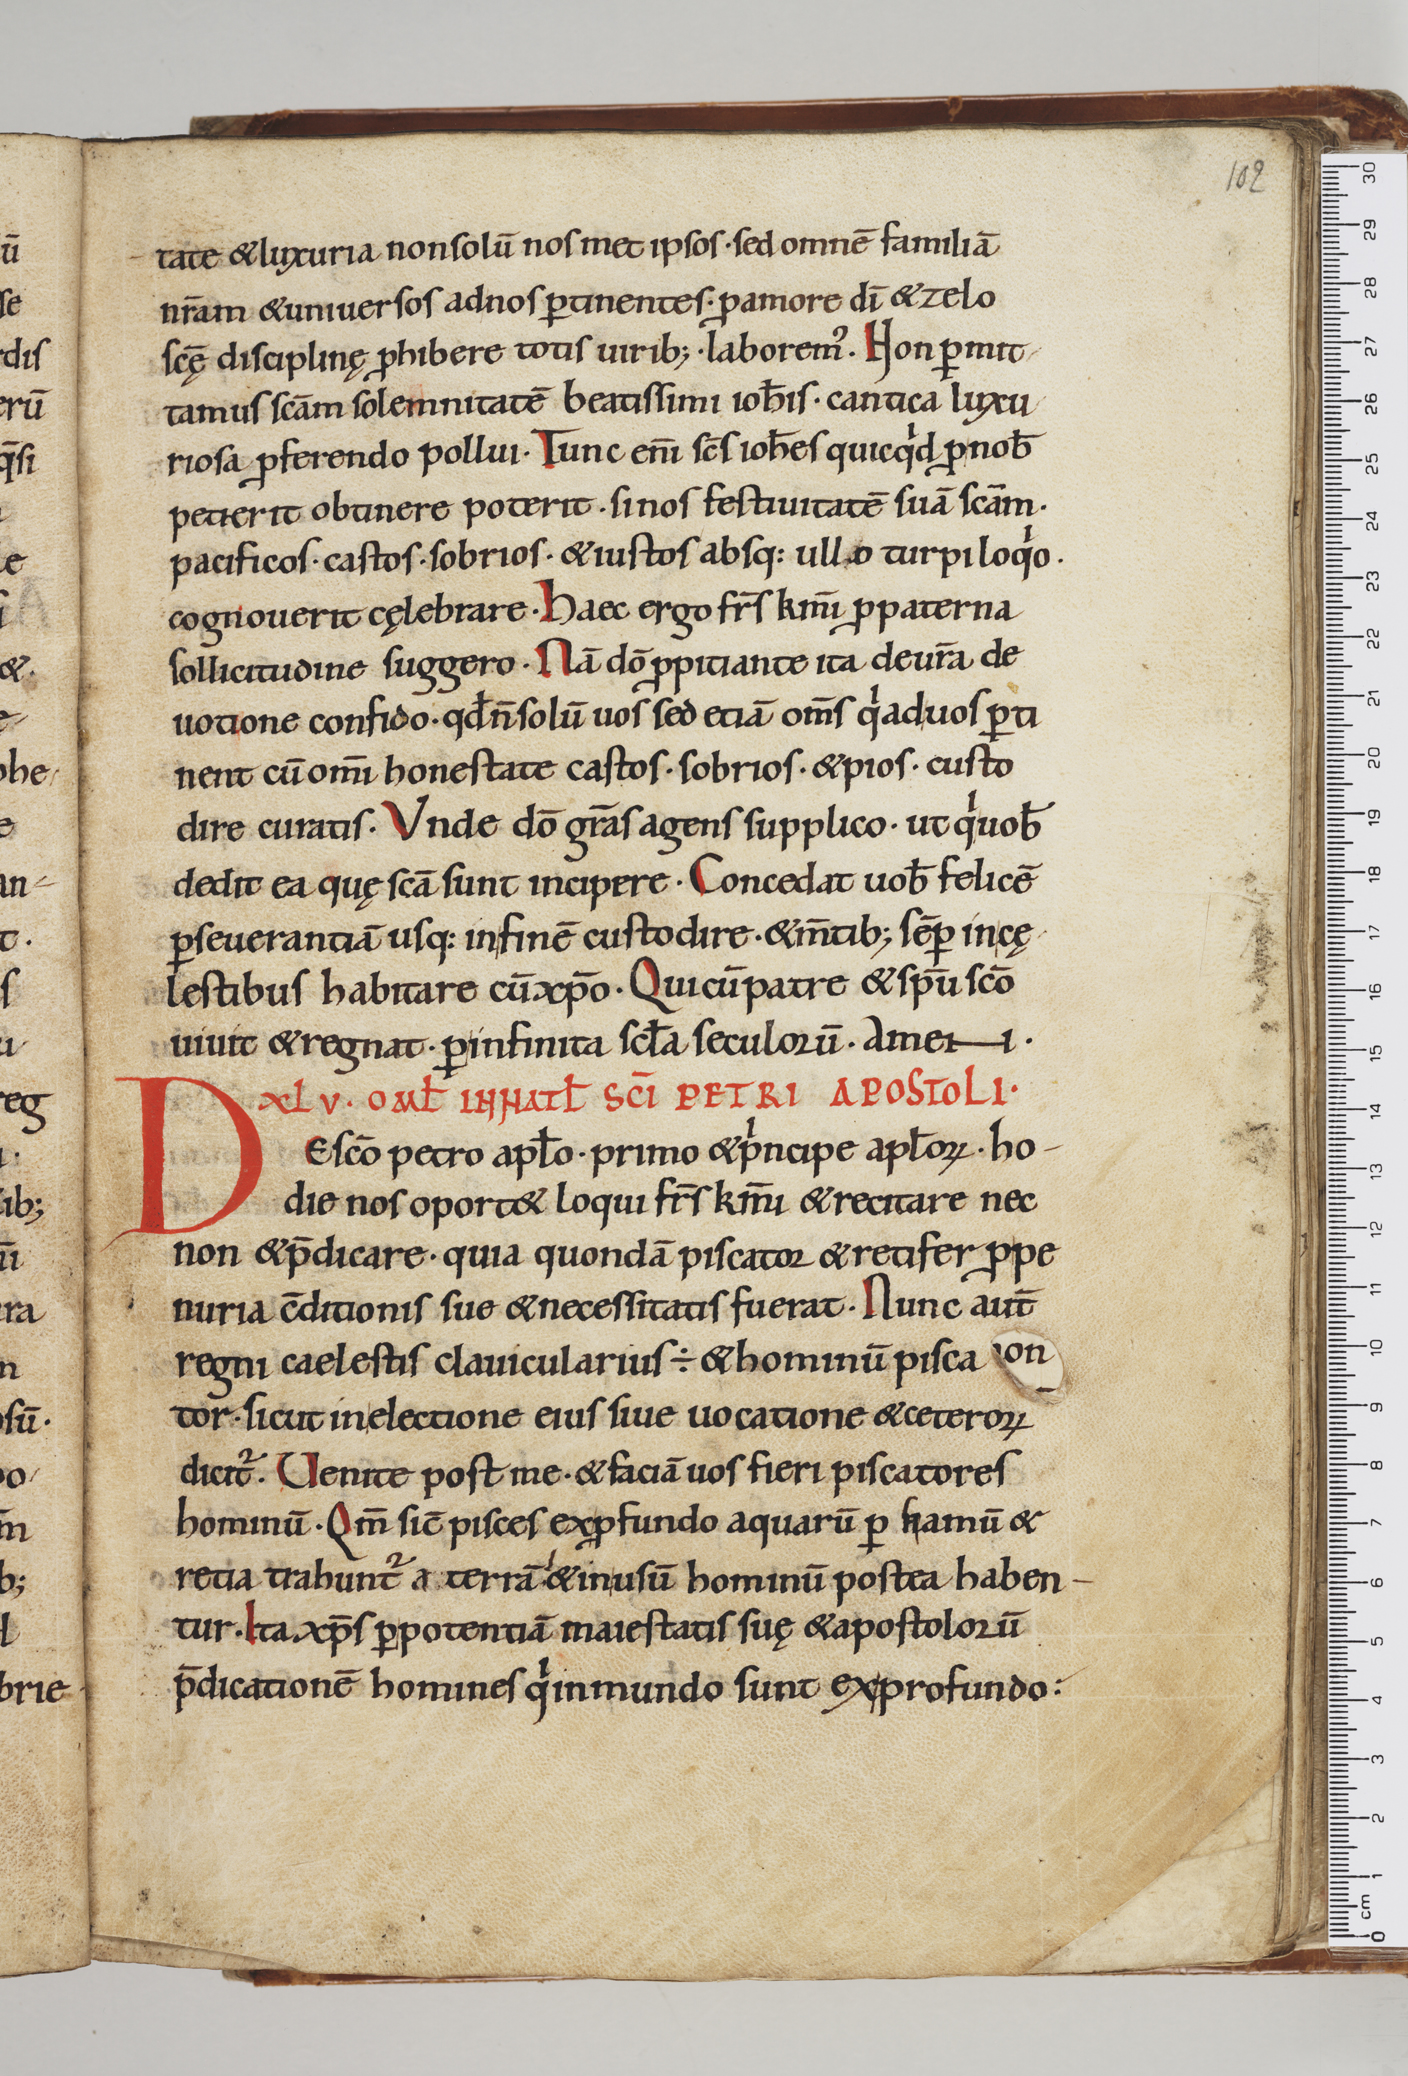 102
tate &luxuria nonsolū nosmet ipsos · sed omnē familiā
nr̄am &uniuersos adnos ꝑtinentes · ꝓamore dī &zelo
scę̄ disciplinę ꝓhibere totis uirib; · laborem᷒ . Non ꝑmit
tamus scām solemnitatē beatissimi ioħis · cantica luxu
riosa ꝓferendo pollui · Tunc em̄ sc̄s ioħes quicqͥd ꝓnob̄
petierit obtinere poterit · sinos festiuitatē suā scām ·
pacificos · castos · sobrios · &iustos absq: ullo turpiloqͥo .
cognouerit cęlebrare · Haec ergo fr̄s km̄i ꝓpaterna
sollicitudine suggero · Nā dō ꝓpitiante ita deur̄a de
uotione confido · qđ n̄solū uos sed etiā om̄s qͥaduos ꝑti
nent cū om̄i honestate castos · sobrios · &pios · custo
dire curatis · Vnde dō gr̄as agens supplico · ut qͥuob̄
dedit ea quę scā sunt incipere · Concedat uob̄ felicē
ꝑseuerantiā usq: infinē custodire · &m̄tib; sēꝑ incę
lestibus habitare cūxp̄o · Qui cūpatre &sp̄u scō
uiuit &regnat · ꝑinfinita scl̄a seculorū · Amen ·
XLV · OML̄ INNATL̄ SC̄I PETRI APOSTOLI ·
DEscō petro apl̄o · primo &pͥncipe apl̄oꝝ · ho-
die nos oport& loqui fr̄s km̄i &recitare nec
non &p̄dicare · quia quondā piscator &retifer ꝓpe
nuria c̄ditionis sue &necessitatis fuerat · Nunc aut̄
regni caelestis clauicularius ÷ &hominū pisca
tor · sicut inelectione eius siue uocatione &ceteroꝝ
dicit᷑ . Uenite post me · &faciā uos fieri piscatores
hominū · Qm̄ sic̄ pisces exꝓfundo aquarū ꝑ hamū &
retia trahunt᷑ a terrā &inusū hominū postea haben-
tur · Ita xp̄s ꝑpotentiā maiestatis suę &apostolorū
p̄dicationē homines qͥinmundo sunt exprofundo: